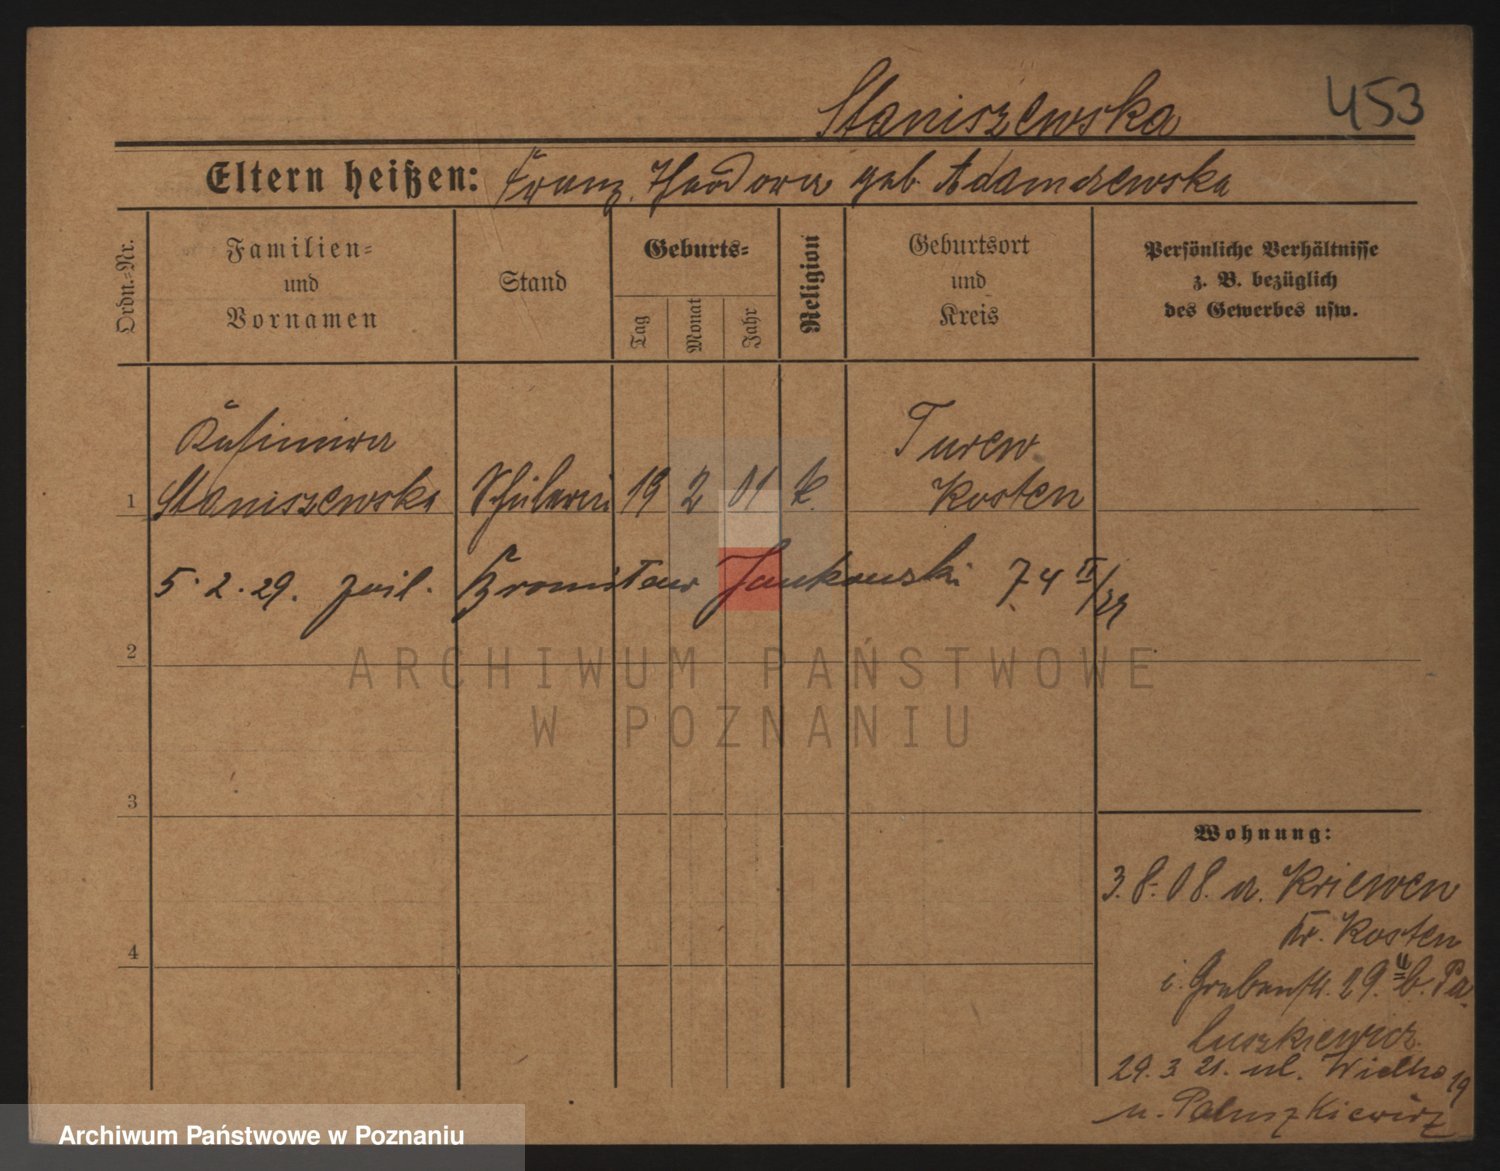 Staniszewska 453
Eltern heißen: Franz. Theodora geb. Adamczewska
Ordn.-Nr.
Familien-
und
Vornamen
Stand
Geburts-
Tag
Monat
Jahr
Religion
Geburtsort
und
Kreis
Persönliche Verhältnisse
z. B. bezüglich
des Gewerbes usw.
Kasimira Turew
1 Staniszewska Schülerin 19 2 01 k. Kosten
5. 2. 29. Bronisław Jankowski 74 II/29
2
3
4
Wohnung:
3. 8. 08. a. Kriewen
Kr. Kosten
i. Grabenstr. 29. II b. Pa-
luszkiewicz
29. 3 21. ul. Wielka 19
u. Paluszkiewicz
ARCHIWUM PAŃSTWOWE
W POZNANIU
Archiwum Państwowe w Poznaniu